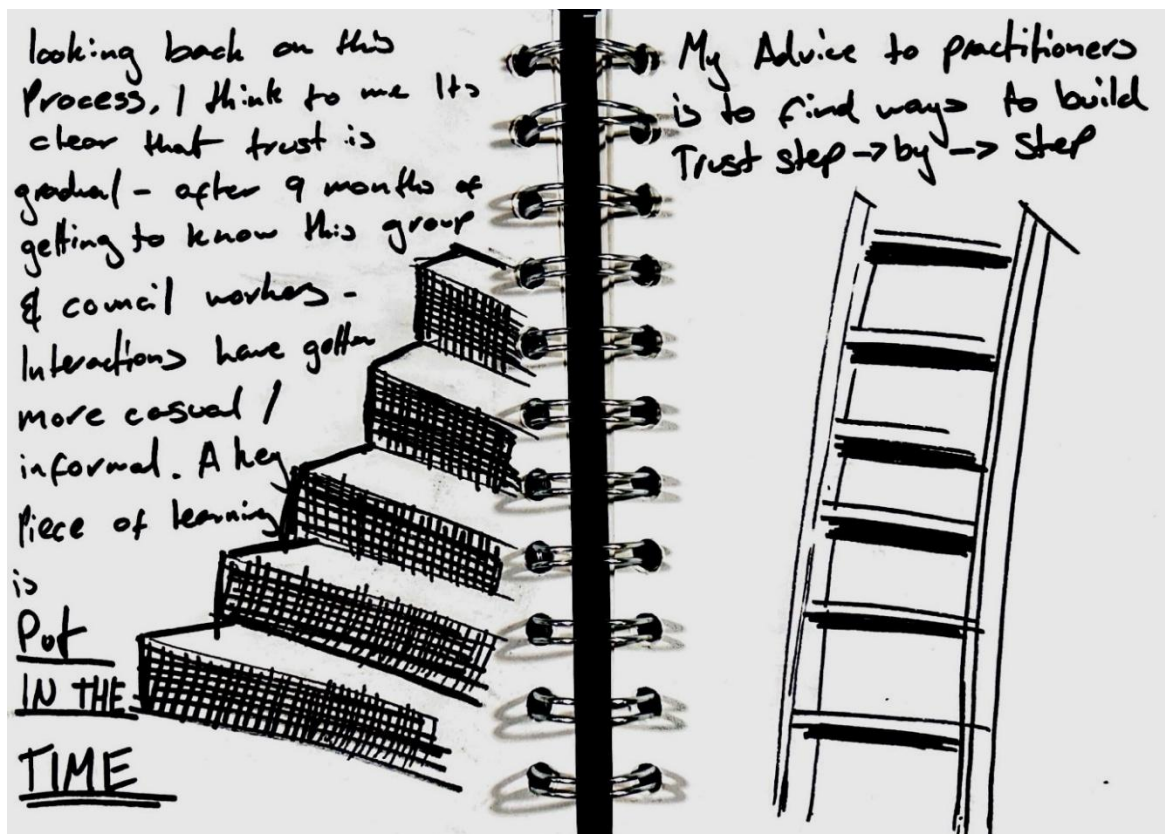 looking back on this
Process, I think to me Its
clear that trust is
gradual - after 9 months of
getting to know this group
& council workers -
Interactions have gotten
more casual /
informal. A key
Piece of learning
is
Put
IN THE
TIME
My Advice to practitioners
is to find ways to build
Trust step → by → step